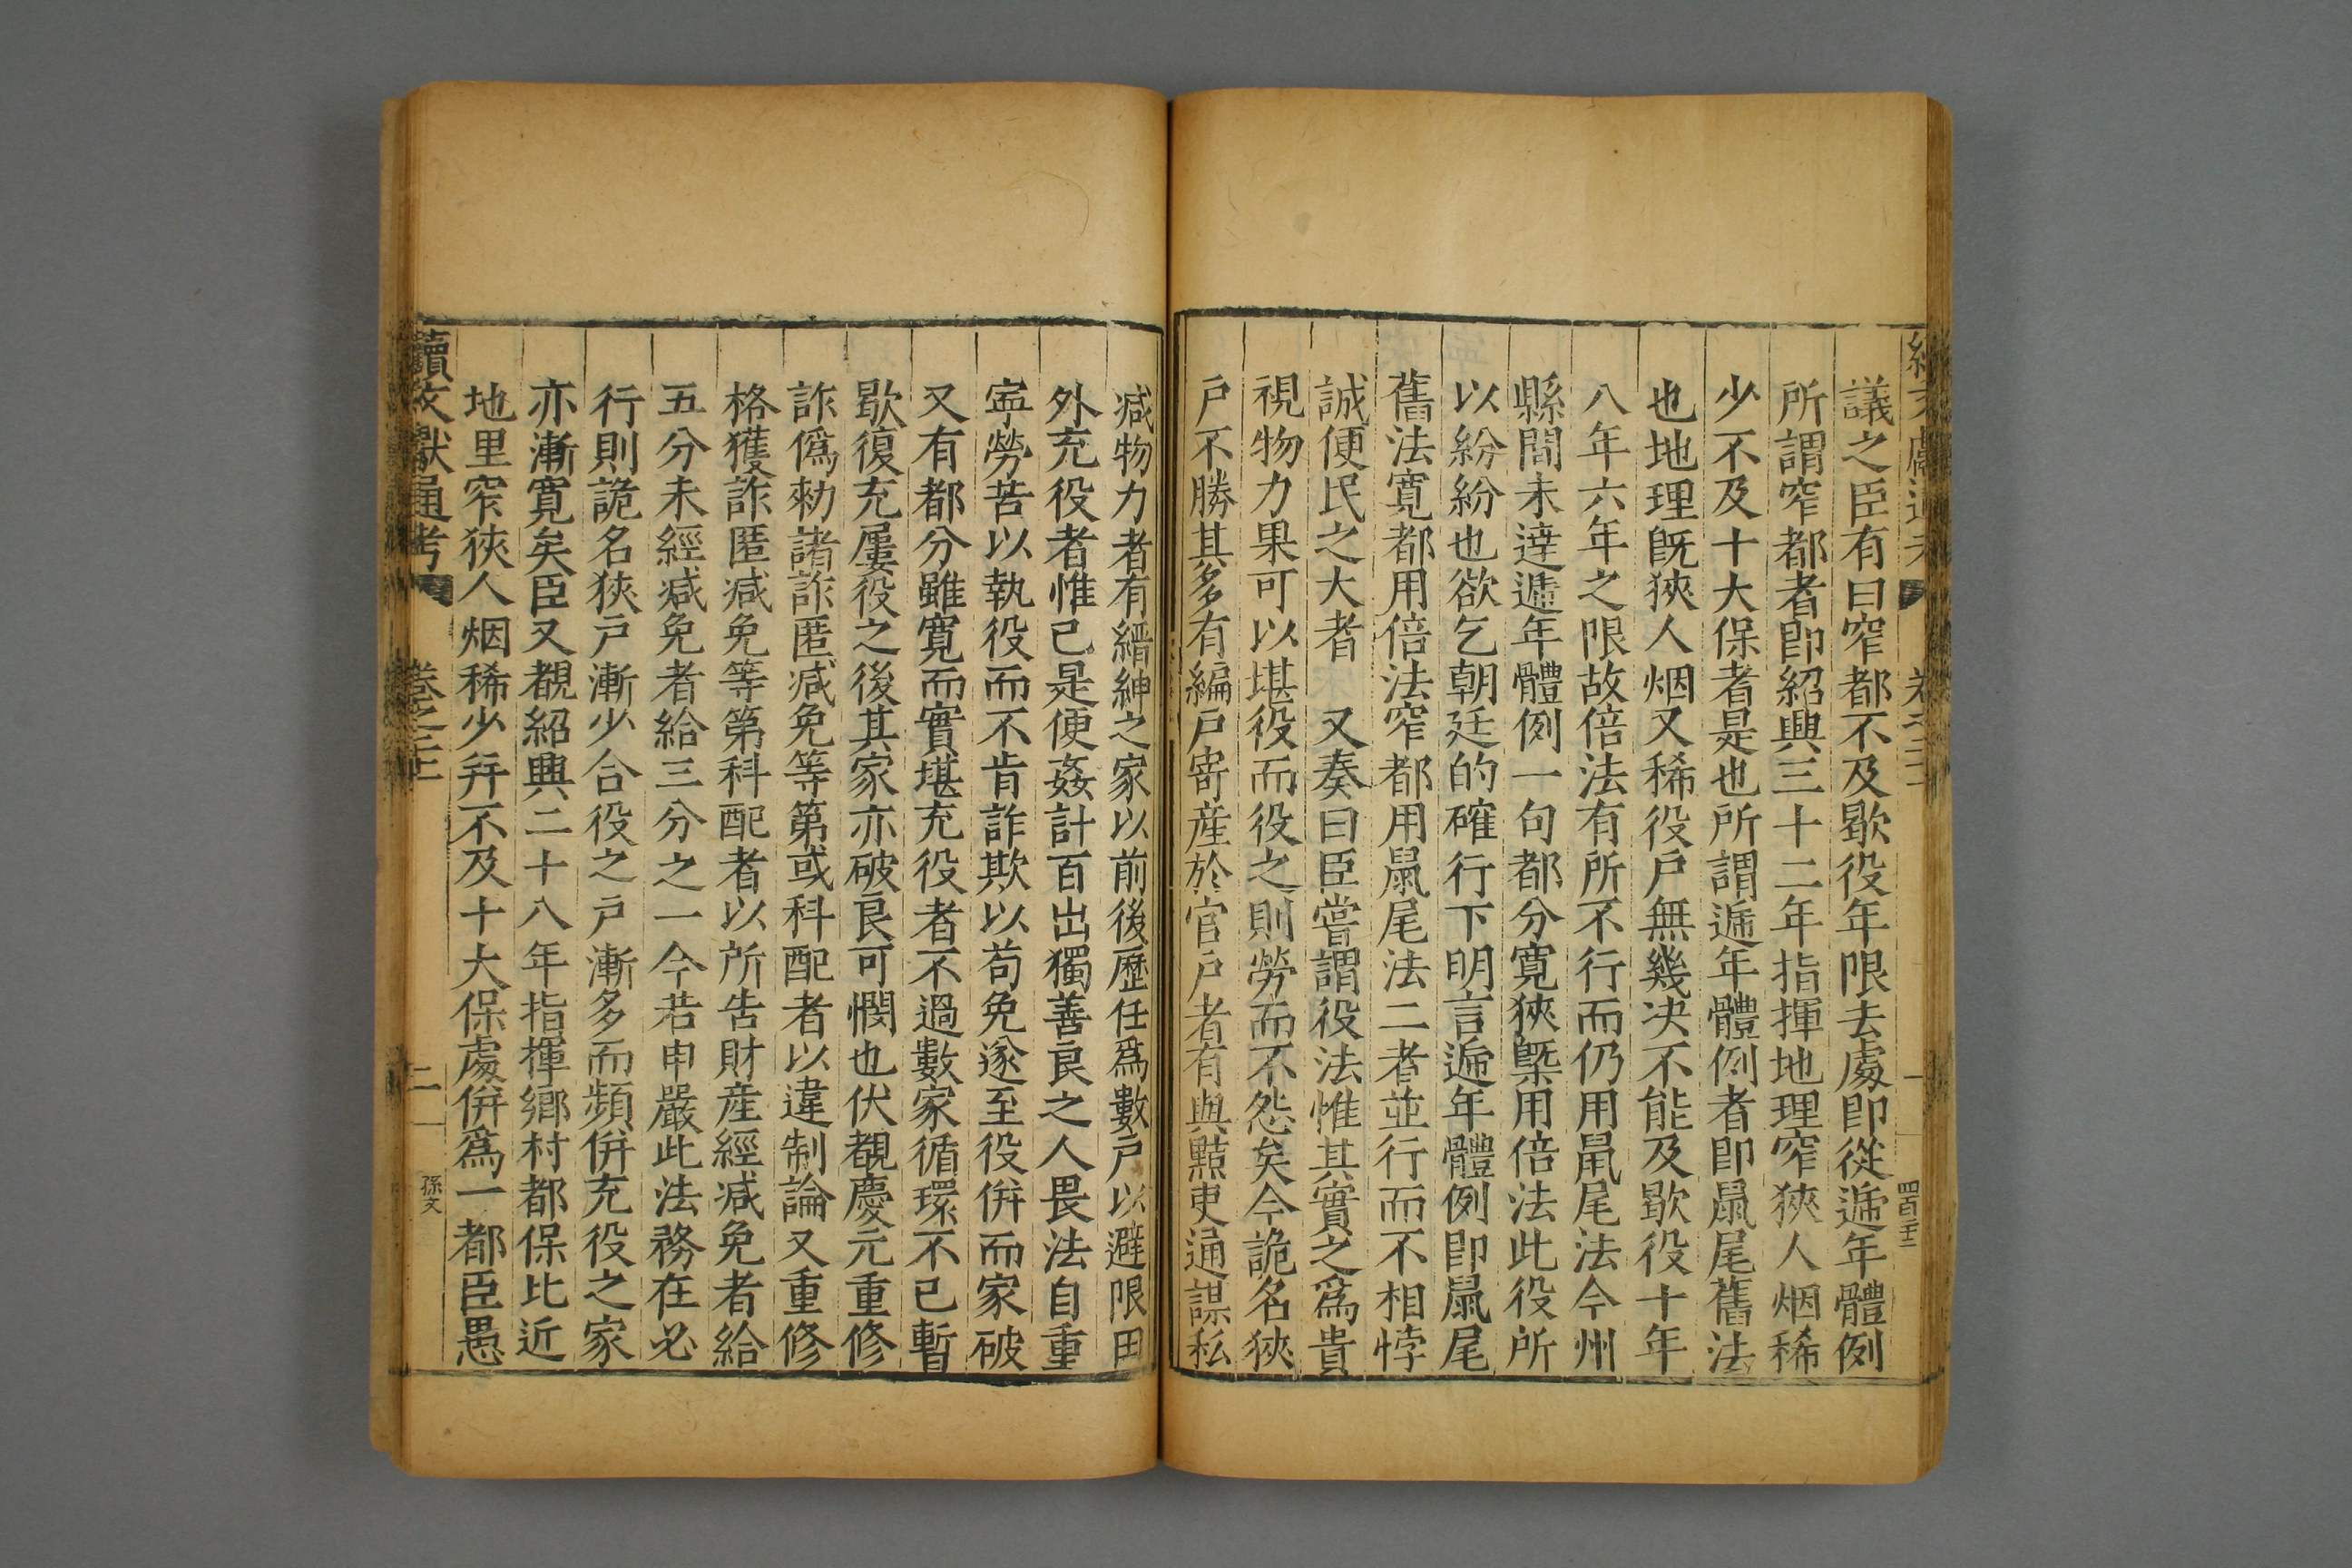 議之臣有曰窄都不及歇役年限去處即從遞年體例
所謂窄都者即紹興三十二年指揮地理窄狹人烟稀
少不及十大保者是也所謂遞年體例者即鼠尾舊法
也地理旣狹人烟又稀役戶無幾决不能及歇役十年
八年六年之限故倍法有所不行而仍用鼠尾法今州
縣間未達遞年體例一句都分寬狹槩用倍法此役所
以紛紛也欲乞朝廷的確行下明言遞年體例即鼠尾
舊法寬都用倍法窄都用鼠尾法二者並行而不相悖
誠便民之大者 又奏曰臣嘗謂役法惟其實之爲貴
視物力果可以堪役而役之則勞而不怨矣今詭名狹
戶不勝其多有編戶寄産於官戶者有與黠吏通謀私
减物力者有縉紳之家以前後歷任爲數戶以避限田
外充役者惟已是便姦計百出獨善良之人畏法自重
寍勞苦以執役而不肯詐欺以苟免遂至役併而家破
又有都分雖寬而實堪充役者不過數家循環不已暫
歇復充屢役之後其家亦破良可憫也伏覩慶元重修
詐僞勑諸詐匿减免等第或科配者以違制論又重修
格獲詐匿减免等第科配者以所告財産經减免者給
五分未經减免者給三分之一今若申嚴此法務在必
行則詭名狹戶漸少合役之戶漸多而頻併充役之家
亦漸寬矣臣又覩紹興二十八年指揮鄉村都保比近
地里窄狹人烟稀少幷不及十大保處併爲一都臣愚
續文獻通考 卷之二十 二 孫文